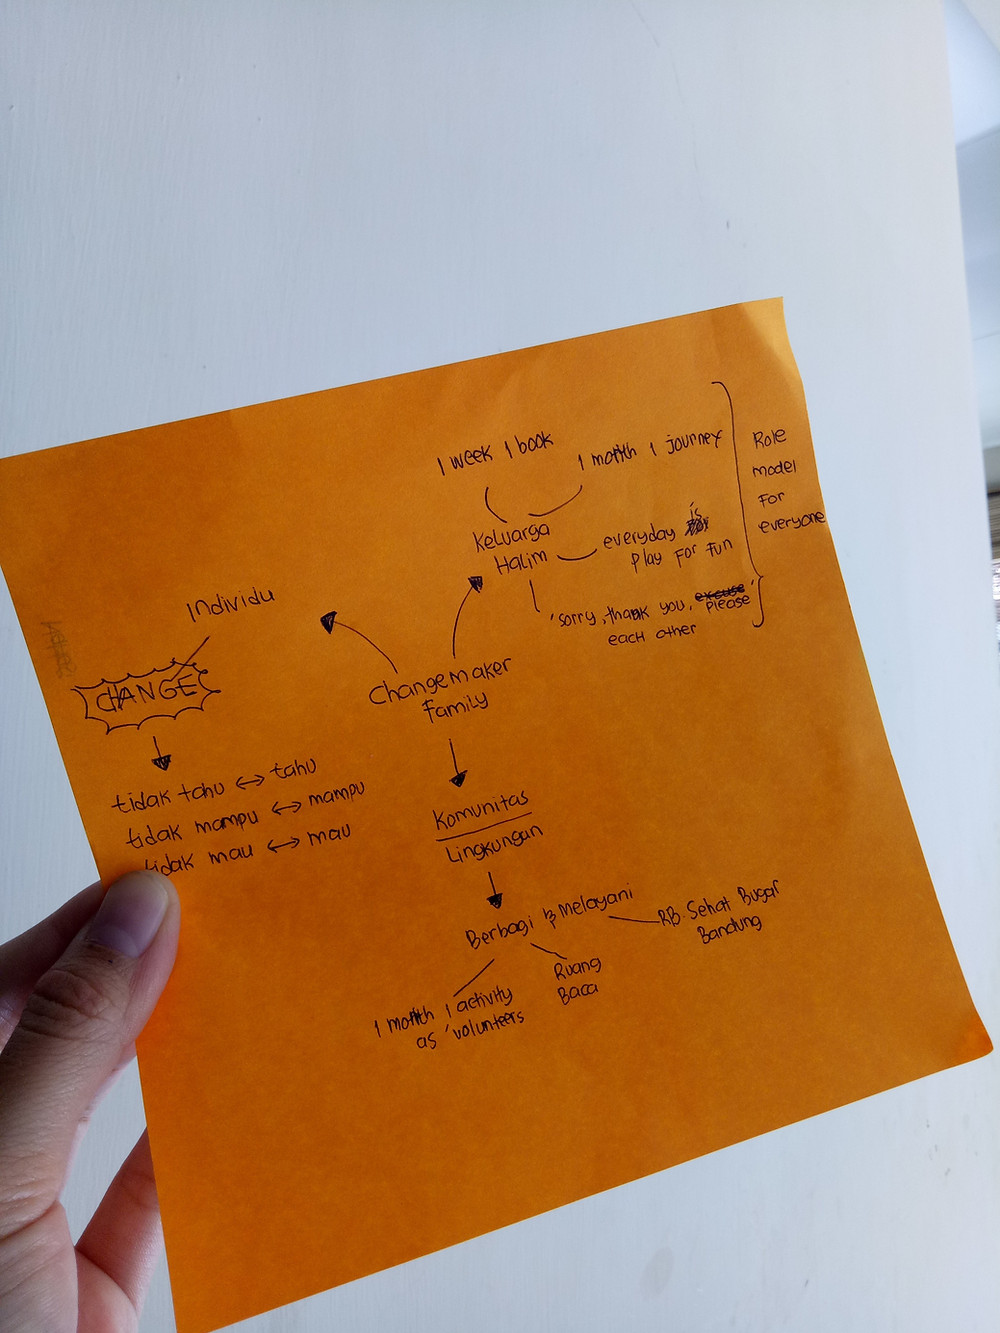 1 week 1 book
1 month 1 journey
Keluarga
Halim
everyday is
play for fun
'sorry, thank you, excuse please'
each other
Role
model
For
everyone
Individu
CHANGE
tidak tahu ↔ tahu
tidak mampu ↔ mampu
tidak mau ↔ mau
Changemaker
Family
Komunitas
Lingkungan
Berbagi & Melayani
RB. Sehat Bugar
Bandung
Ruang
Baca
1 month 1 activity
as volunteers